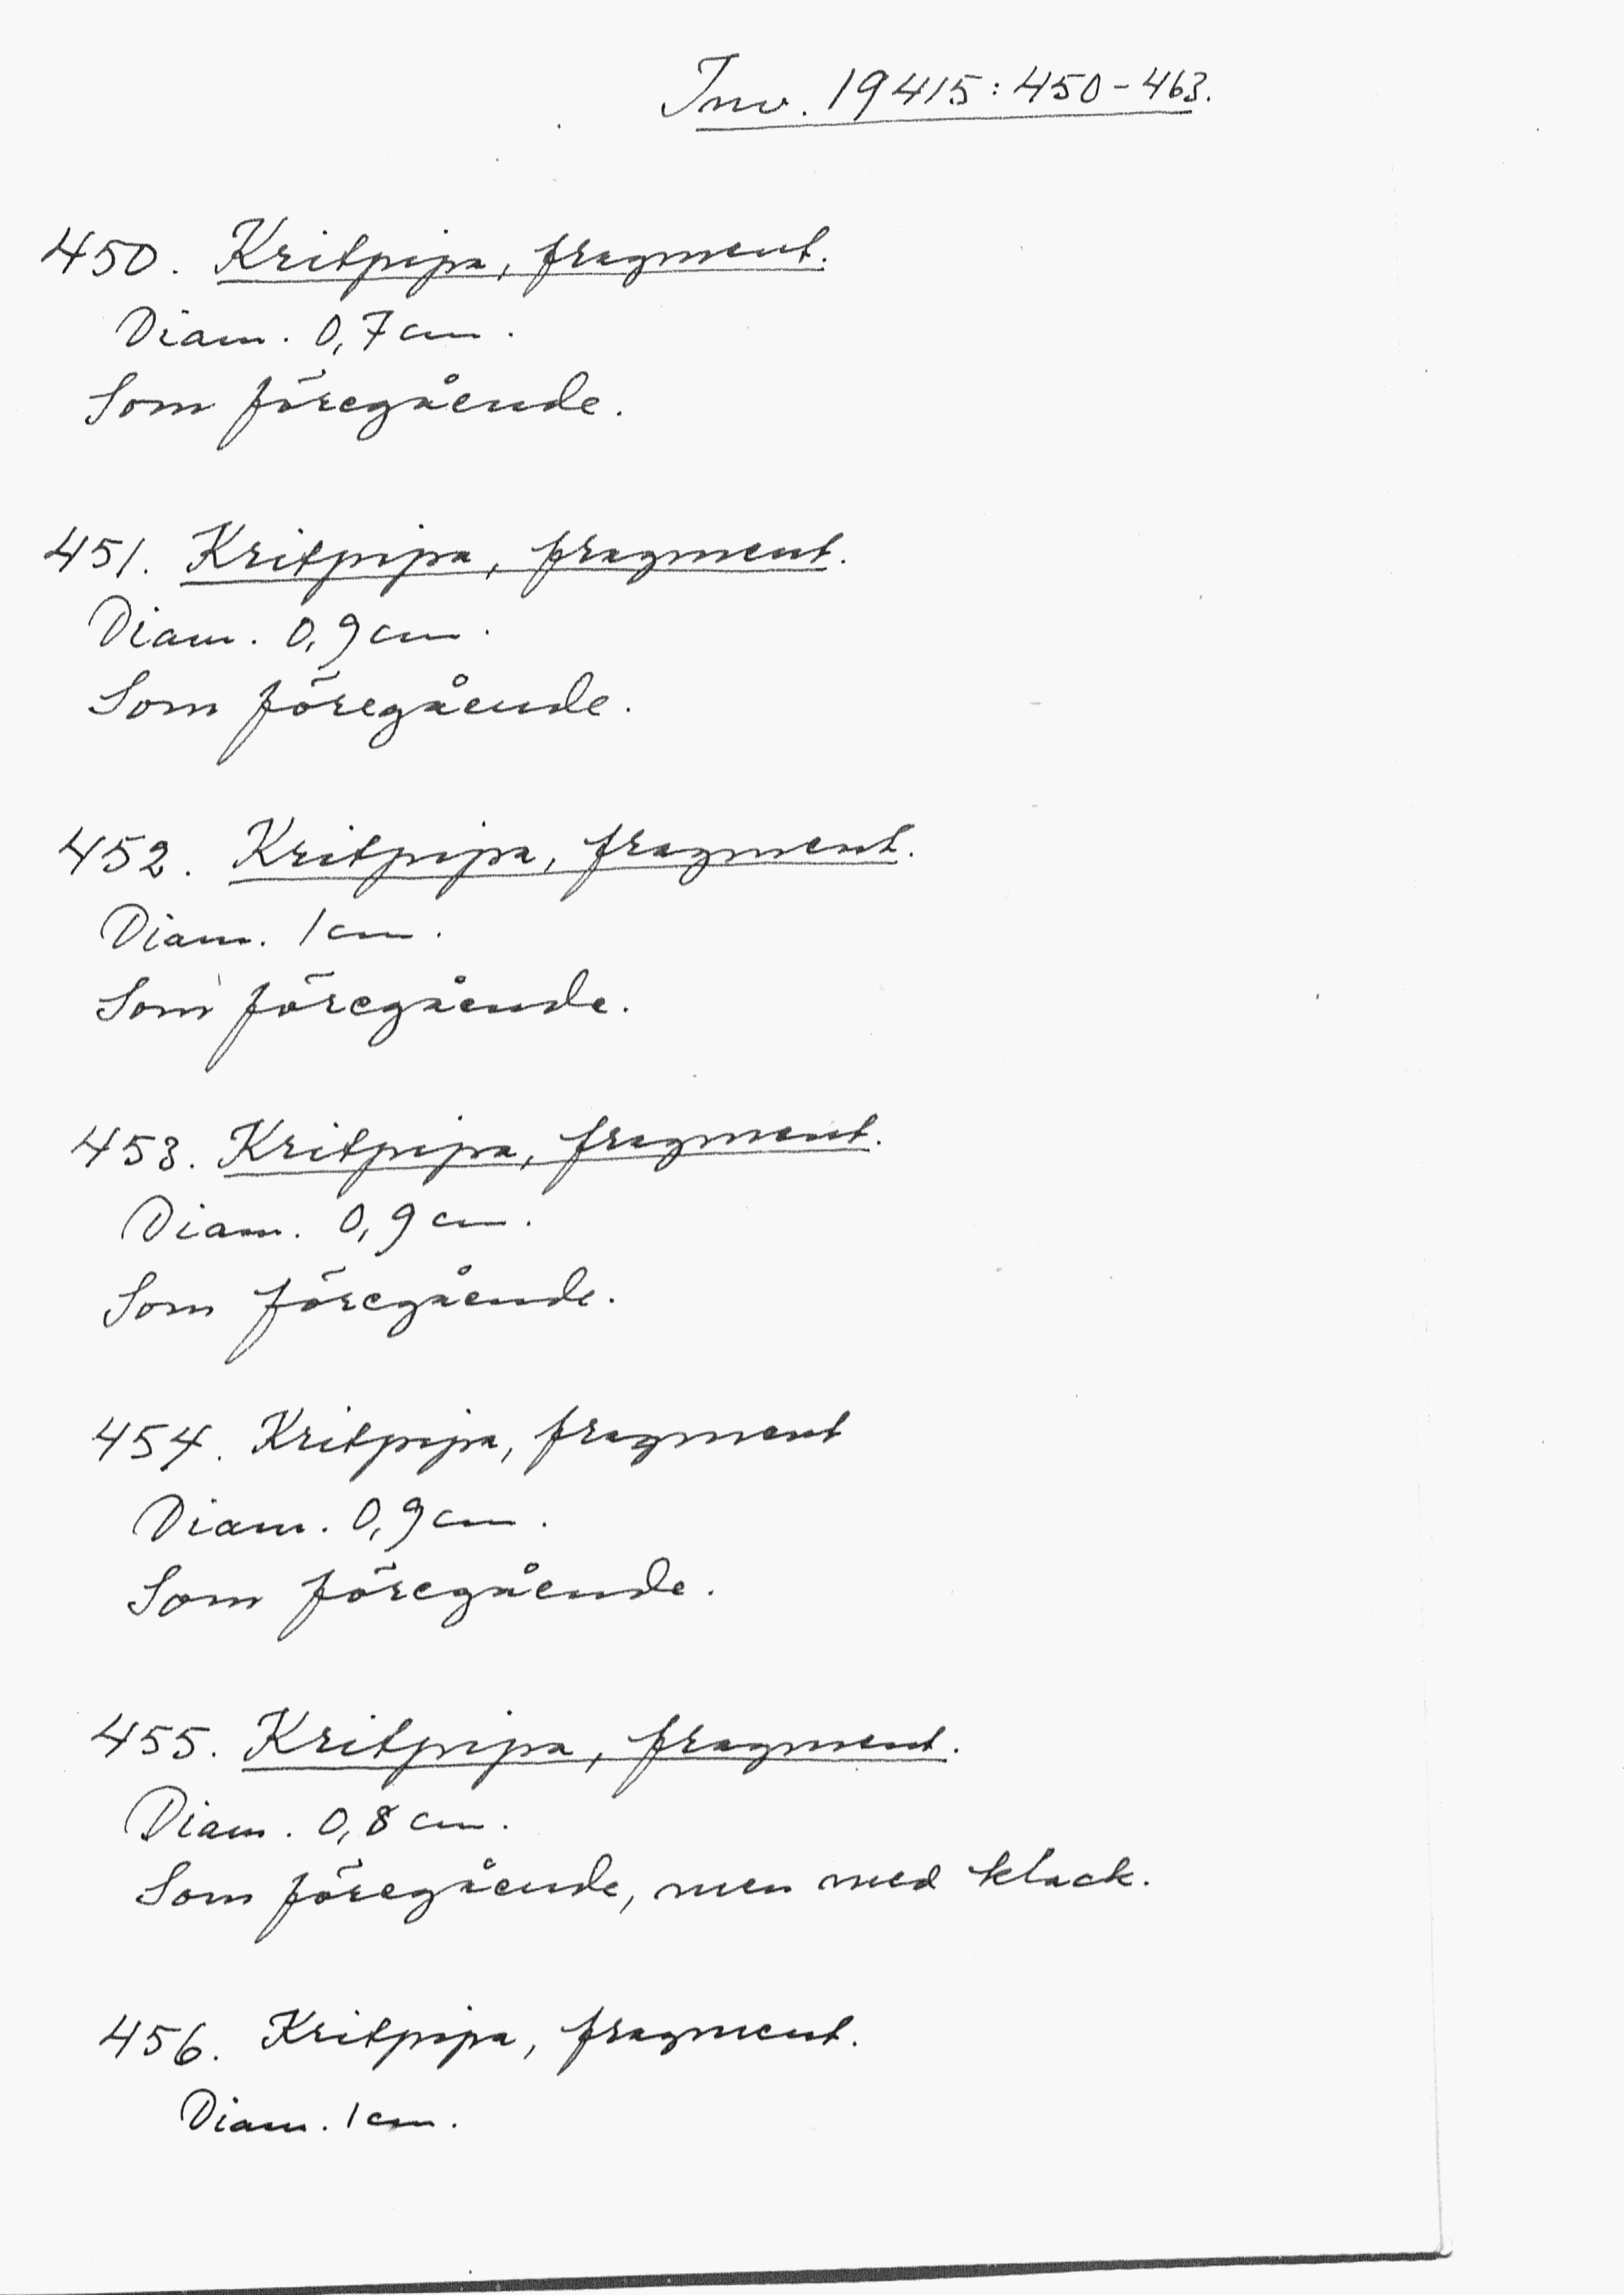 Inv. 19415:450-463.
450. Kritpipa, fragment.
Diam. 0,7 cm.
Som föregående.
451. Kritpipa, fragment.
Diam. 0,9 cm.
Som föregående.
452. Kritpipa, fragment.
Diam. 1 cm.
Som föregående.
453. Kritpipa, fragment.
Diam. 0,9 cm.
Som föregående.
454. Kritpipa, fragment
Diam. 0,9 cm.
Som föregående.
455. Kritpipa, fragment.
Diam. 0,8 cm.
Som föregående, men med klack.
456. Kritpipa, fragment.
Diam. 1 cm.